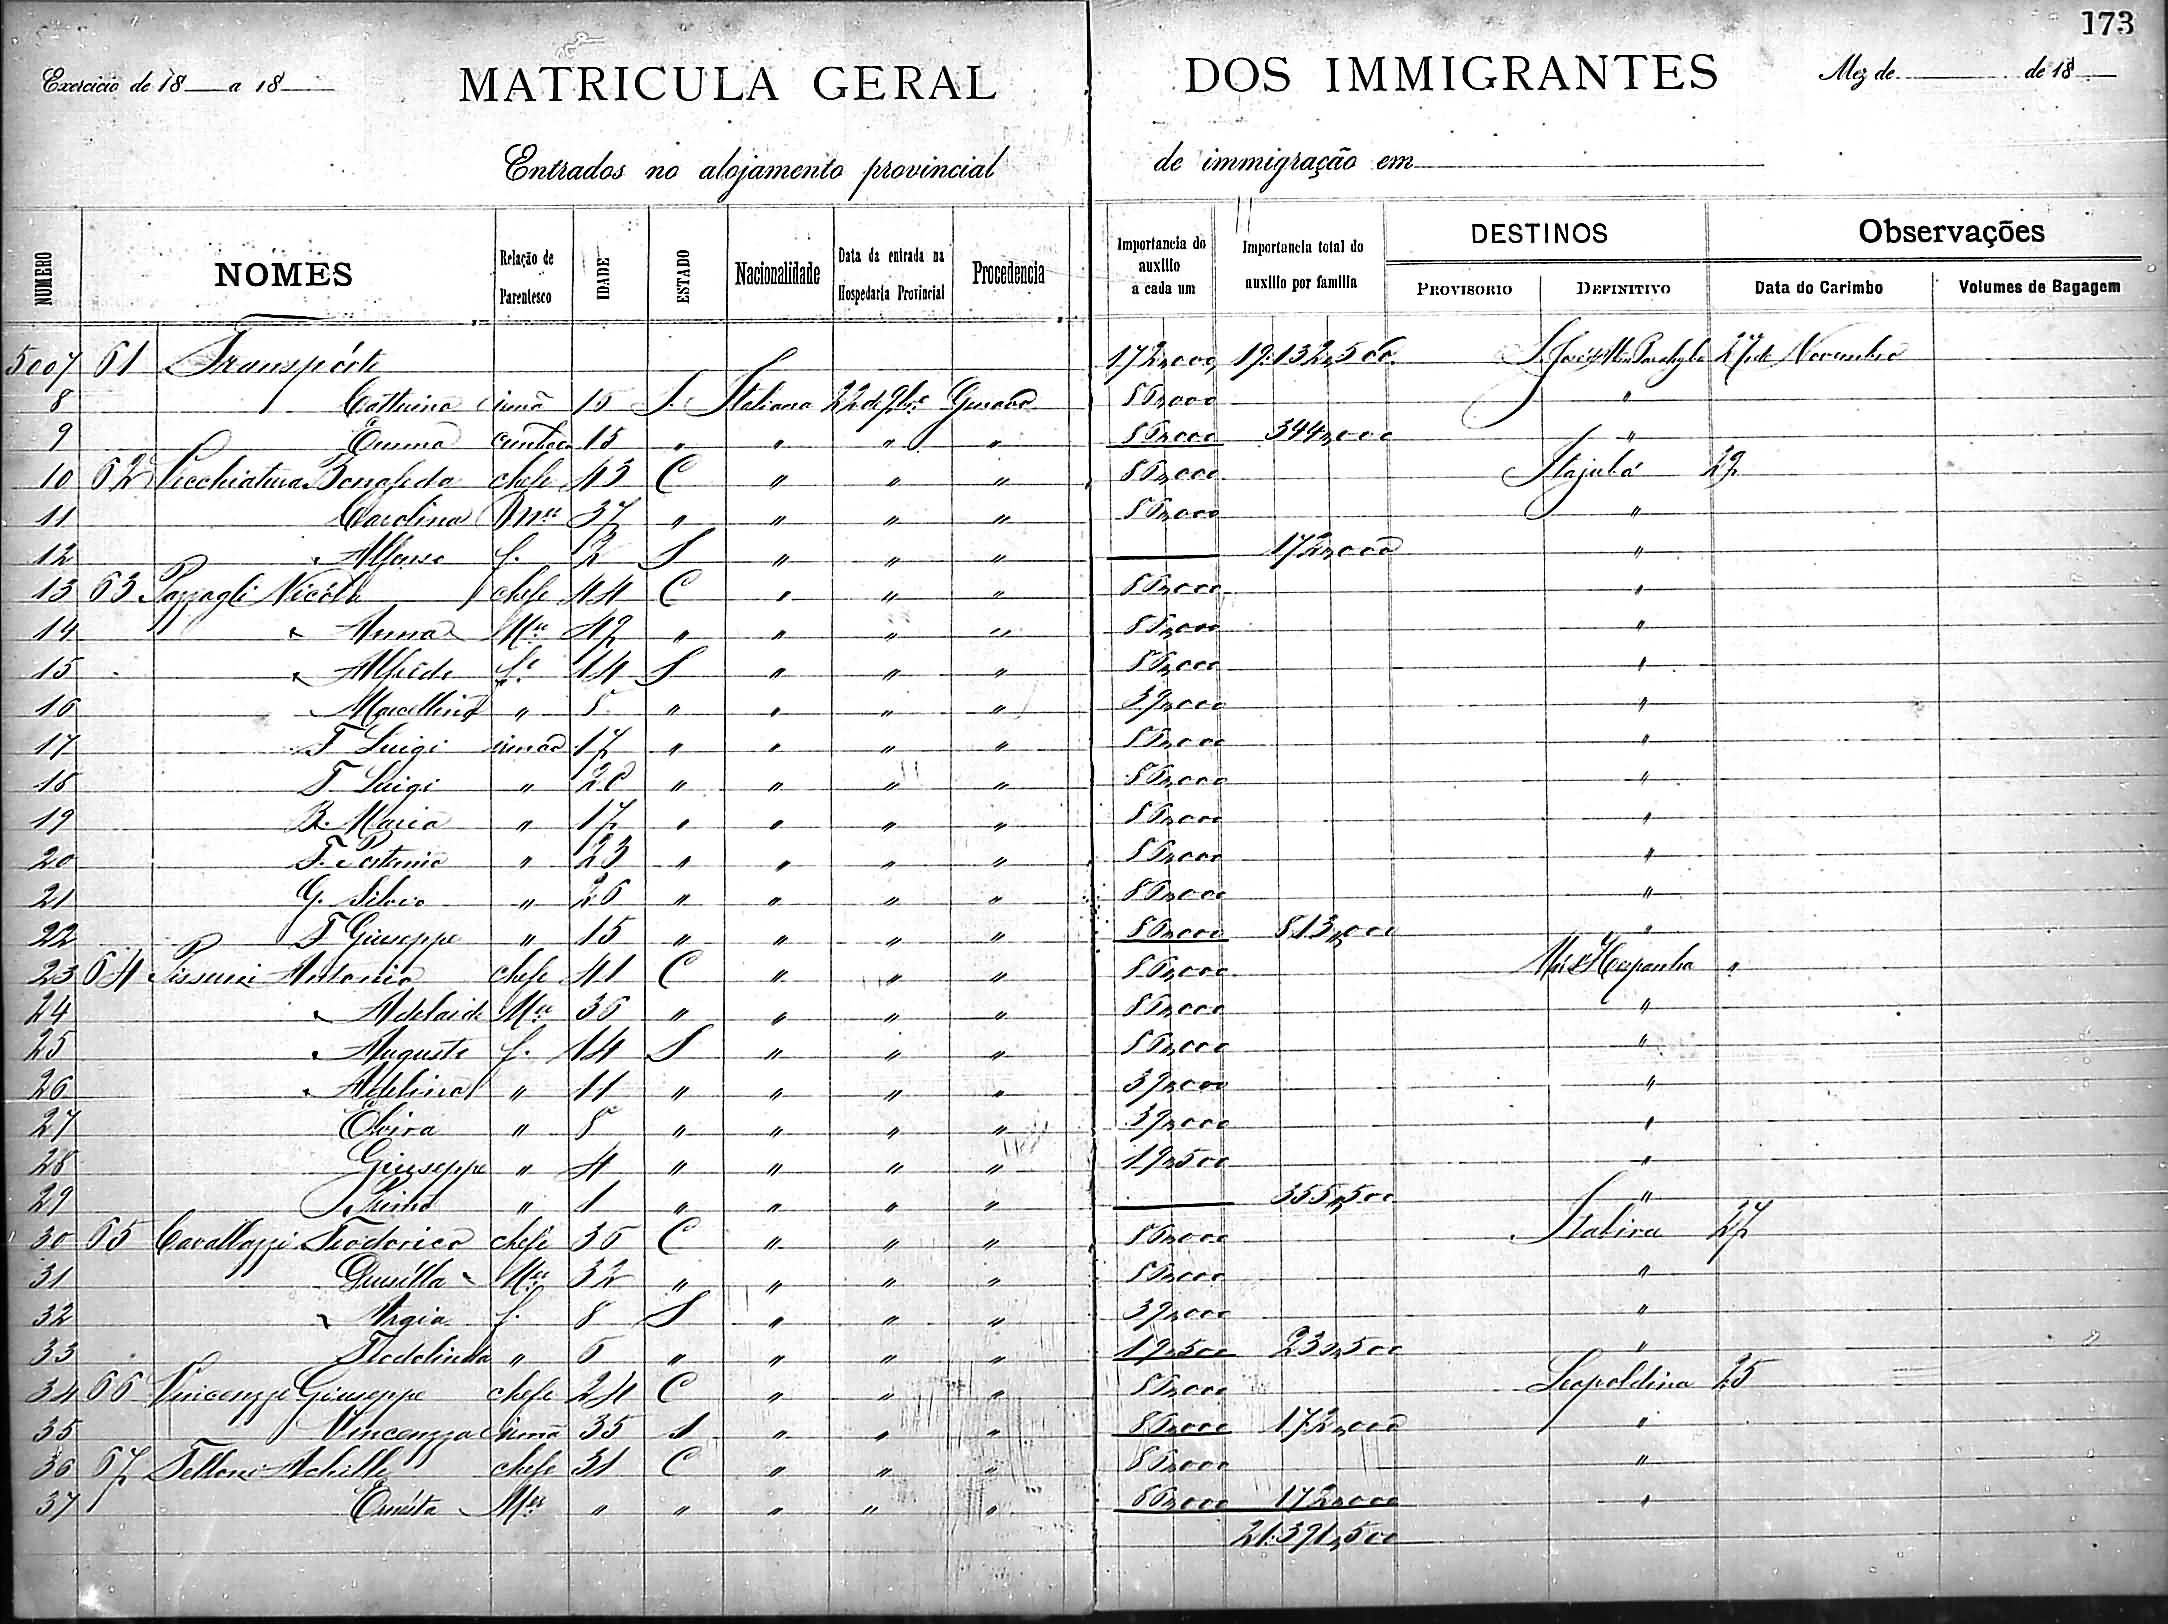 173
Exercicio de 18 a 18
MATRICULA GERAL DOS IMMIGRANTES
Mez de de 18
Entrados no alojamento provincial de immigração em
NUMERO NOMES Relação de Parentesco IDADE ESTADO Nacionalidade Data da entrada na Hospedaria Provincial Procedencia Importancia do auxilio a cada um Importancia total do auxilio por familia DESTINOS PROVISORIO DEFINITIVO Observações Data do Carimbo Volumes de Bagagem
5007 61 Transpórte 172,000 19:132,500 27 de Novembro
8 Catharina irmã 15 S. Italiana 22 de 9bro Genova 86,000 "
9 Emma 15 " " " " 86,000 344,000 "
10 62 chefe 43 C " " " 86,000 Itajubá 29
11 Carolina Mer 37 " " " " 86,000 "
12 " Alfonso f. 2 S " " " — 172,000 "
13 63 Pazzagli Nicóla chefe 44 C " " " 86,000 "
14 " Anna Mer 42 " " " " 86,000 "
15 " Alfredo fo 14 S " " " 86,000 "
16 " Marcellino " 8 " " " " 39,000 "
17 T. Luigi irmão 17 " " " " 86,000 "
18 T. Luigi " 20 " " " " 86,000 "
19 B. Maria " 17 " " " " 86,000 "
20 T. " 23 " " " " 86,000 "
21 G. Silvio " 26 " " " " 86,000 "
22 T. Giuseppe " 15 " " " " 86,000 813,000 "
23 64 Antonio chefe 41 C " " " 86,000 Mar de Hespanha "
24 " Adelaide Mer 36 " " " " 86,000 "
25 " Augusto f. 14 S " " " 86,000 "
26 " Adelina " 11 " " " " 39,000 "
27 Elvira " 8 " " " " 39,000 "
28 Giuseppe " 4 " " " " 19,500 "
29 " Primo " 1 " " " " — 355,500 "
30 65 Cavallazzi Teodorico chefe 36 C " " " 86,000 Itabira 27
31 Mer 32 " " " " 86,000 "
32 " Argia f. 8 S " " " 39,000 "
33 Teodolinda " 6 " " " " 19,500 230,500 "
34 66 Vincenzzi Giuseppe chefe 24 C " " " 86,000 Leopoldina 25
35 Vincenzza irmã 35 S " " " 86,000 172,000 "
36 67 Telloni Achille chefe 31 C " " " 86,000 "
37 Mer " " " " " 86,000 172,000 "
21:391,500